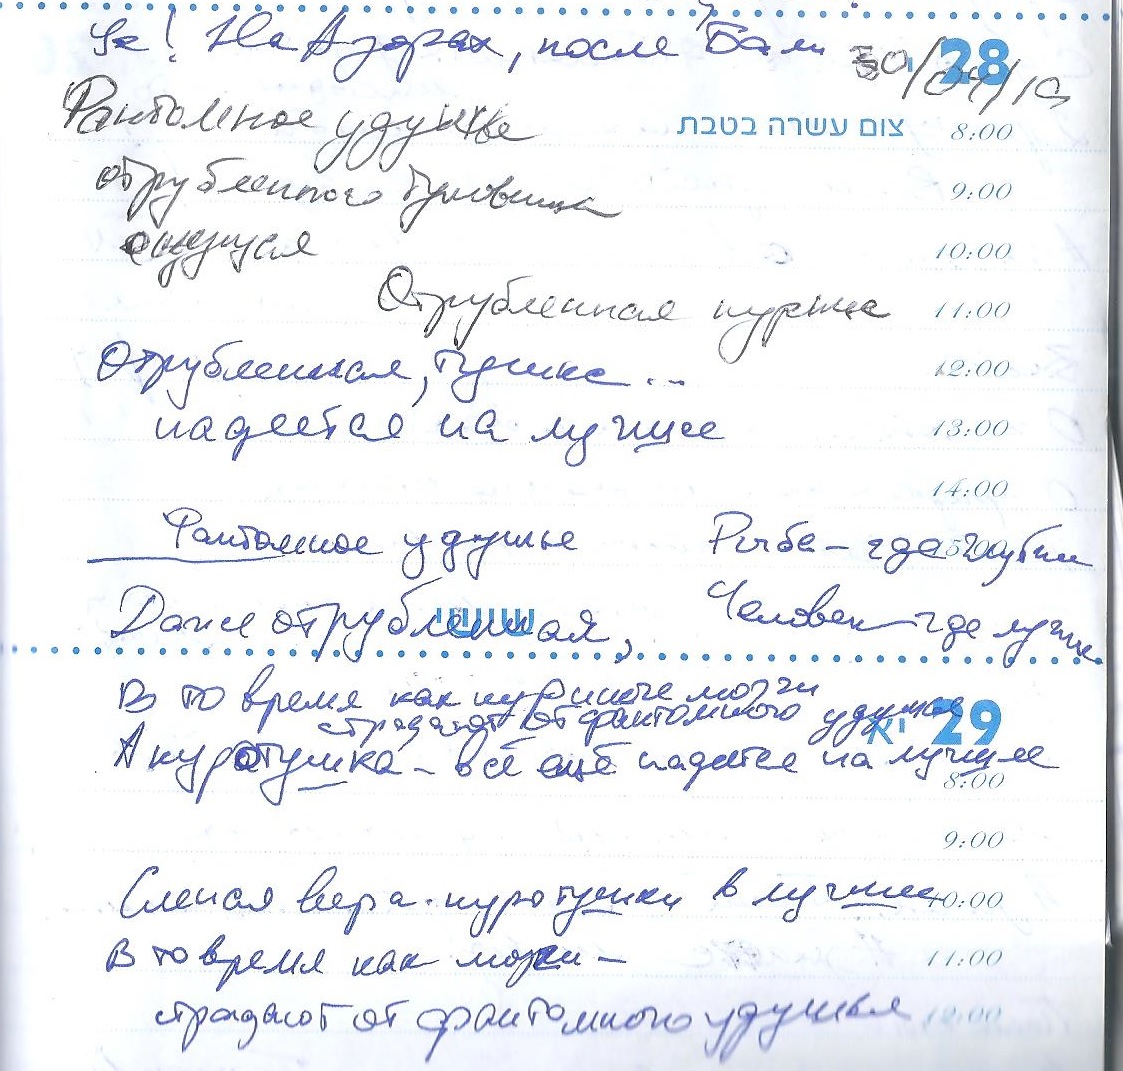 Да! На Азорах, после Бали 30/04/19
28
Фантомное удушье צום עשרה בטבת 8:00
отрубленного туловища 9:00
10:00
Отрубленная курица 11:00
Отрубленная, тушка... 12:00
надеется на лучшее 13:00
14:00
Фантомное удушье Рыба – где глубже
Даже отрубленная, Человек – где лучше
שישי
В то время как куриные мозги
страдают от фантомного удушья 29 יא
А куротушка – всё ещё надеется на лучшее
8:00
9:00
Слепая вера куротушки в лучшее 10:00
В то время как мозги – 11:00
страдают от фантомного удушья 12:00